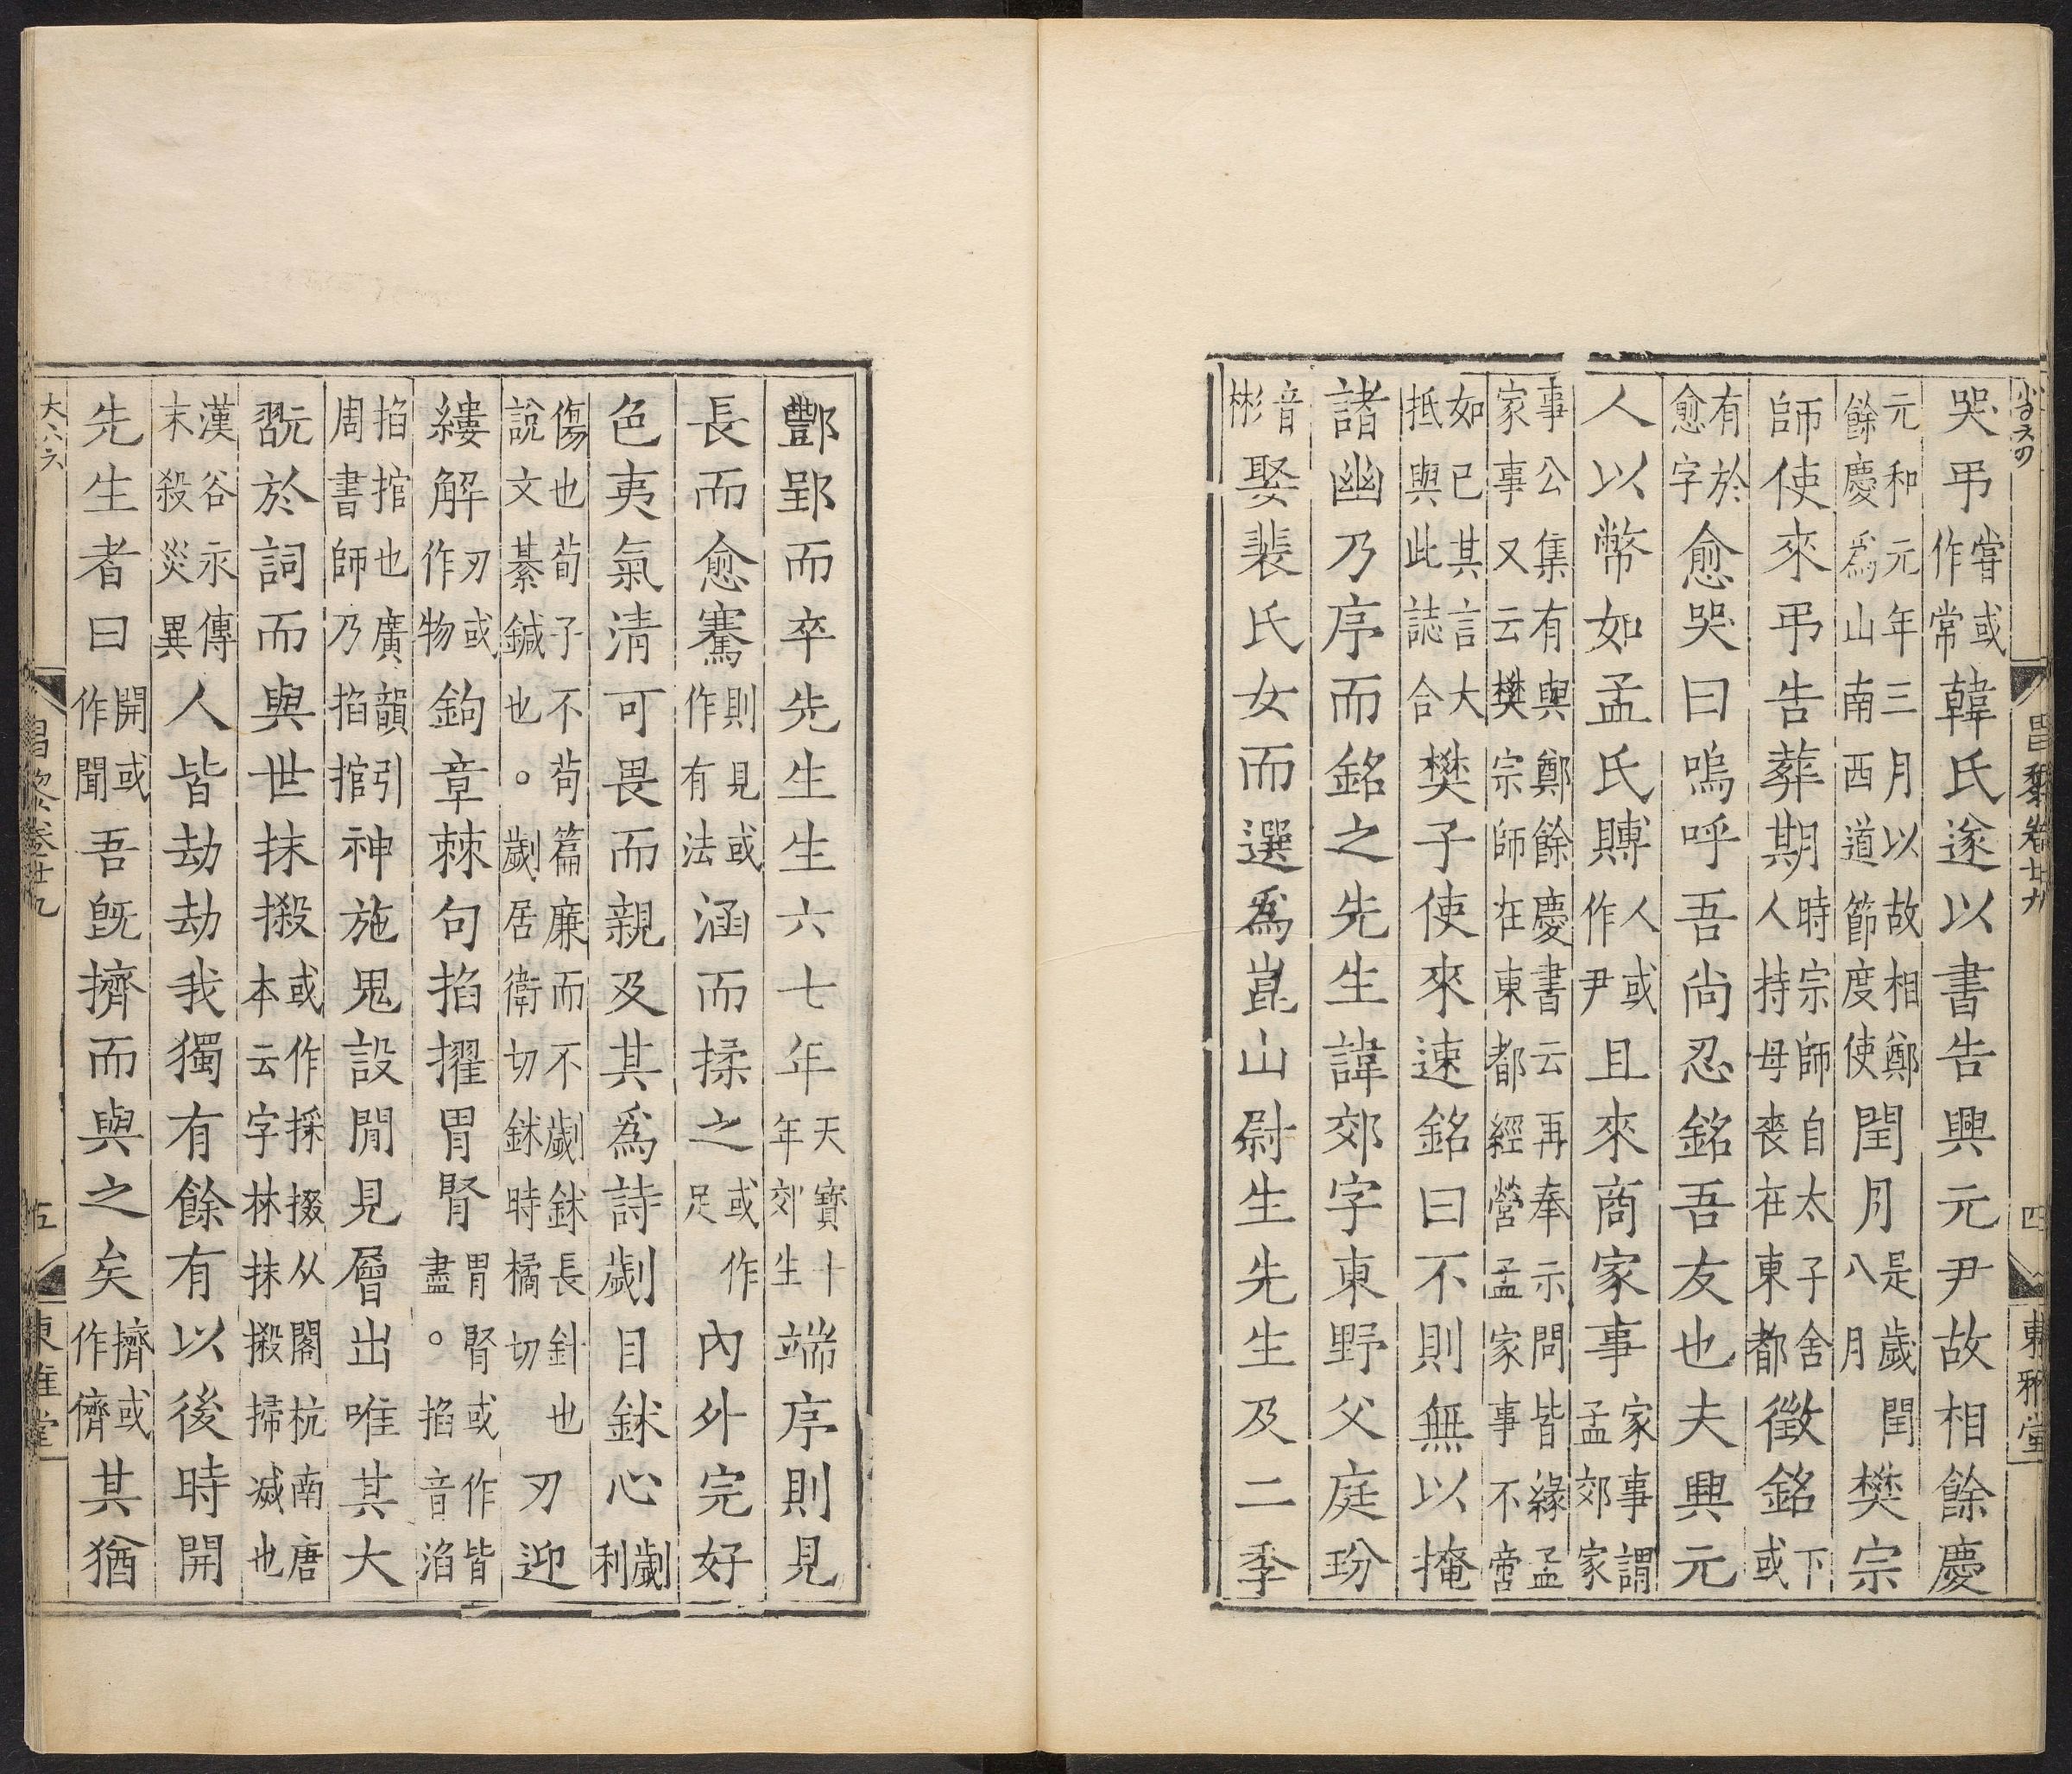 昌黎卷廿九 四 東雅堂
哭弔嘗或作常韓氏遂以書告興元尹故相餘慶
元和元年三月以故相鄭餘慶爲山南西道節度使閏月是歲閏八月樊宗
師使來弔告葬期時宗師自太子舍人持母喪在東都徵銘下或
有於愈字愈哭曰嗚呼吾尚忍銘吾友也夫興元
人以幣如孟氏賻人或作尹且來商家事家事謂孟郊家
事公集有與鄭餘慶書云再奉示問皆緣孟家事又云樊宗師在東都經營孟家事不啻
如已其言大抵與此誌合樊子使來速銘曰不則無以掩
諸幽乃序而銘之先生諱郊字東野父庭玢
音彬娶裴氏女而選爲崑山尉生先生及二季
酆郢而卒先生生六七年天寶十年郊生端序則見
長而愈騫則見或作有法涵而揉之或作足內外完好
色夷氣清可畏而親及其爲詩劌目鉥心劌利
傷也荀子不苟篇廉而不劌鉥長針也說文綦鍼也。劌居衛切鉥時橘切刃迎
縷解刃或作物鉤章棘句掐擢胃腎胃腎或作皆盡。掐音滔
掐捾也廣韻引周書師乃掐捾神施鬼設間見層出唯其大
翫於詞而與世抹摋或作採掇从閣杭南唐本云字林抹摋掃滅也
漢谷永傳末殺災異人皆劫劫我獨有餘有以後時開
先生者曰開或作聞吾既擠而與之矣擠或作儕其猶
大六六 昌黎卷廿九 五 東雅堂